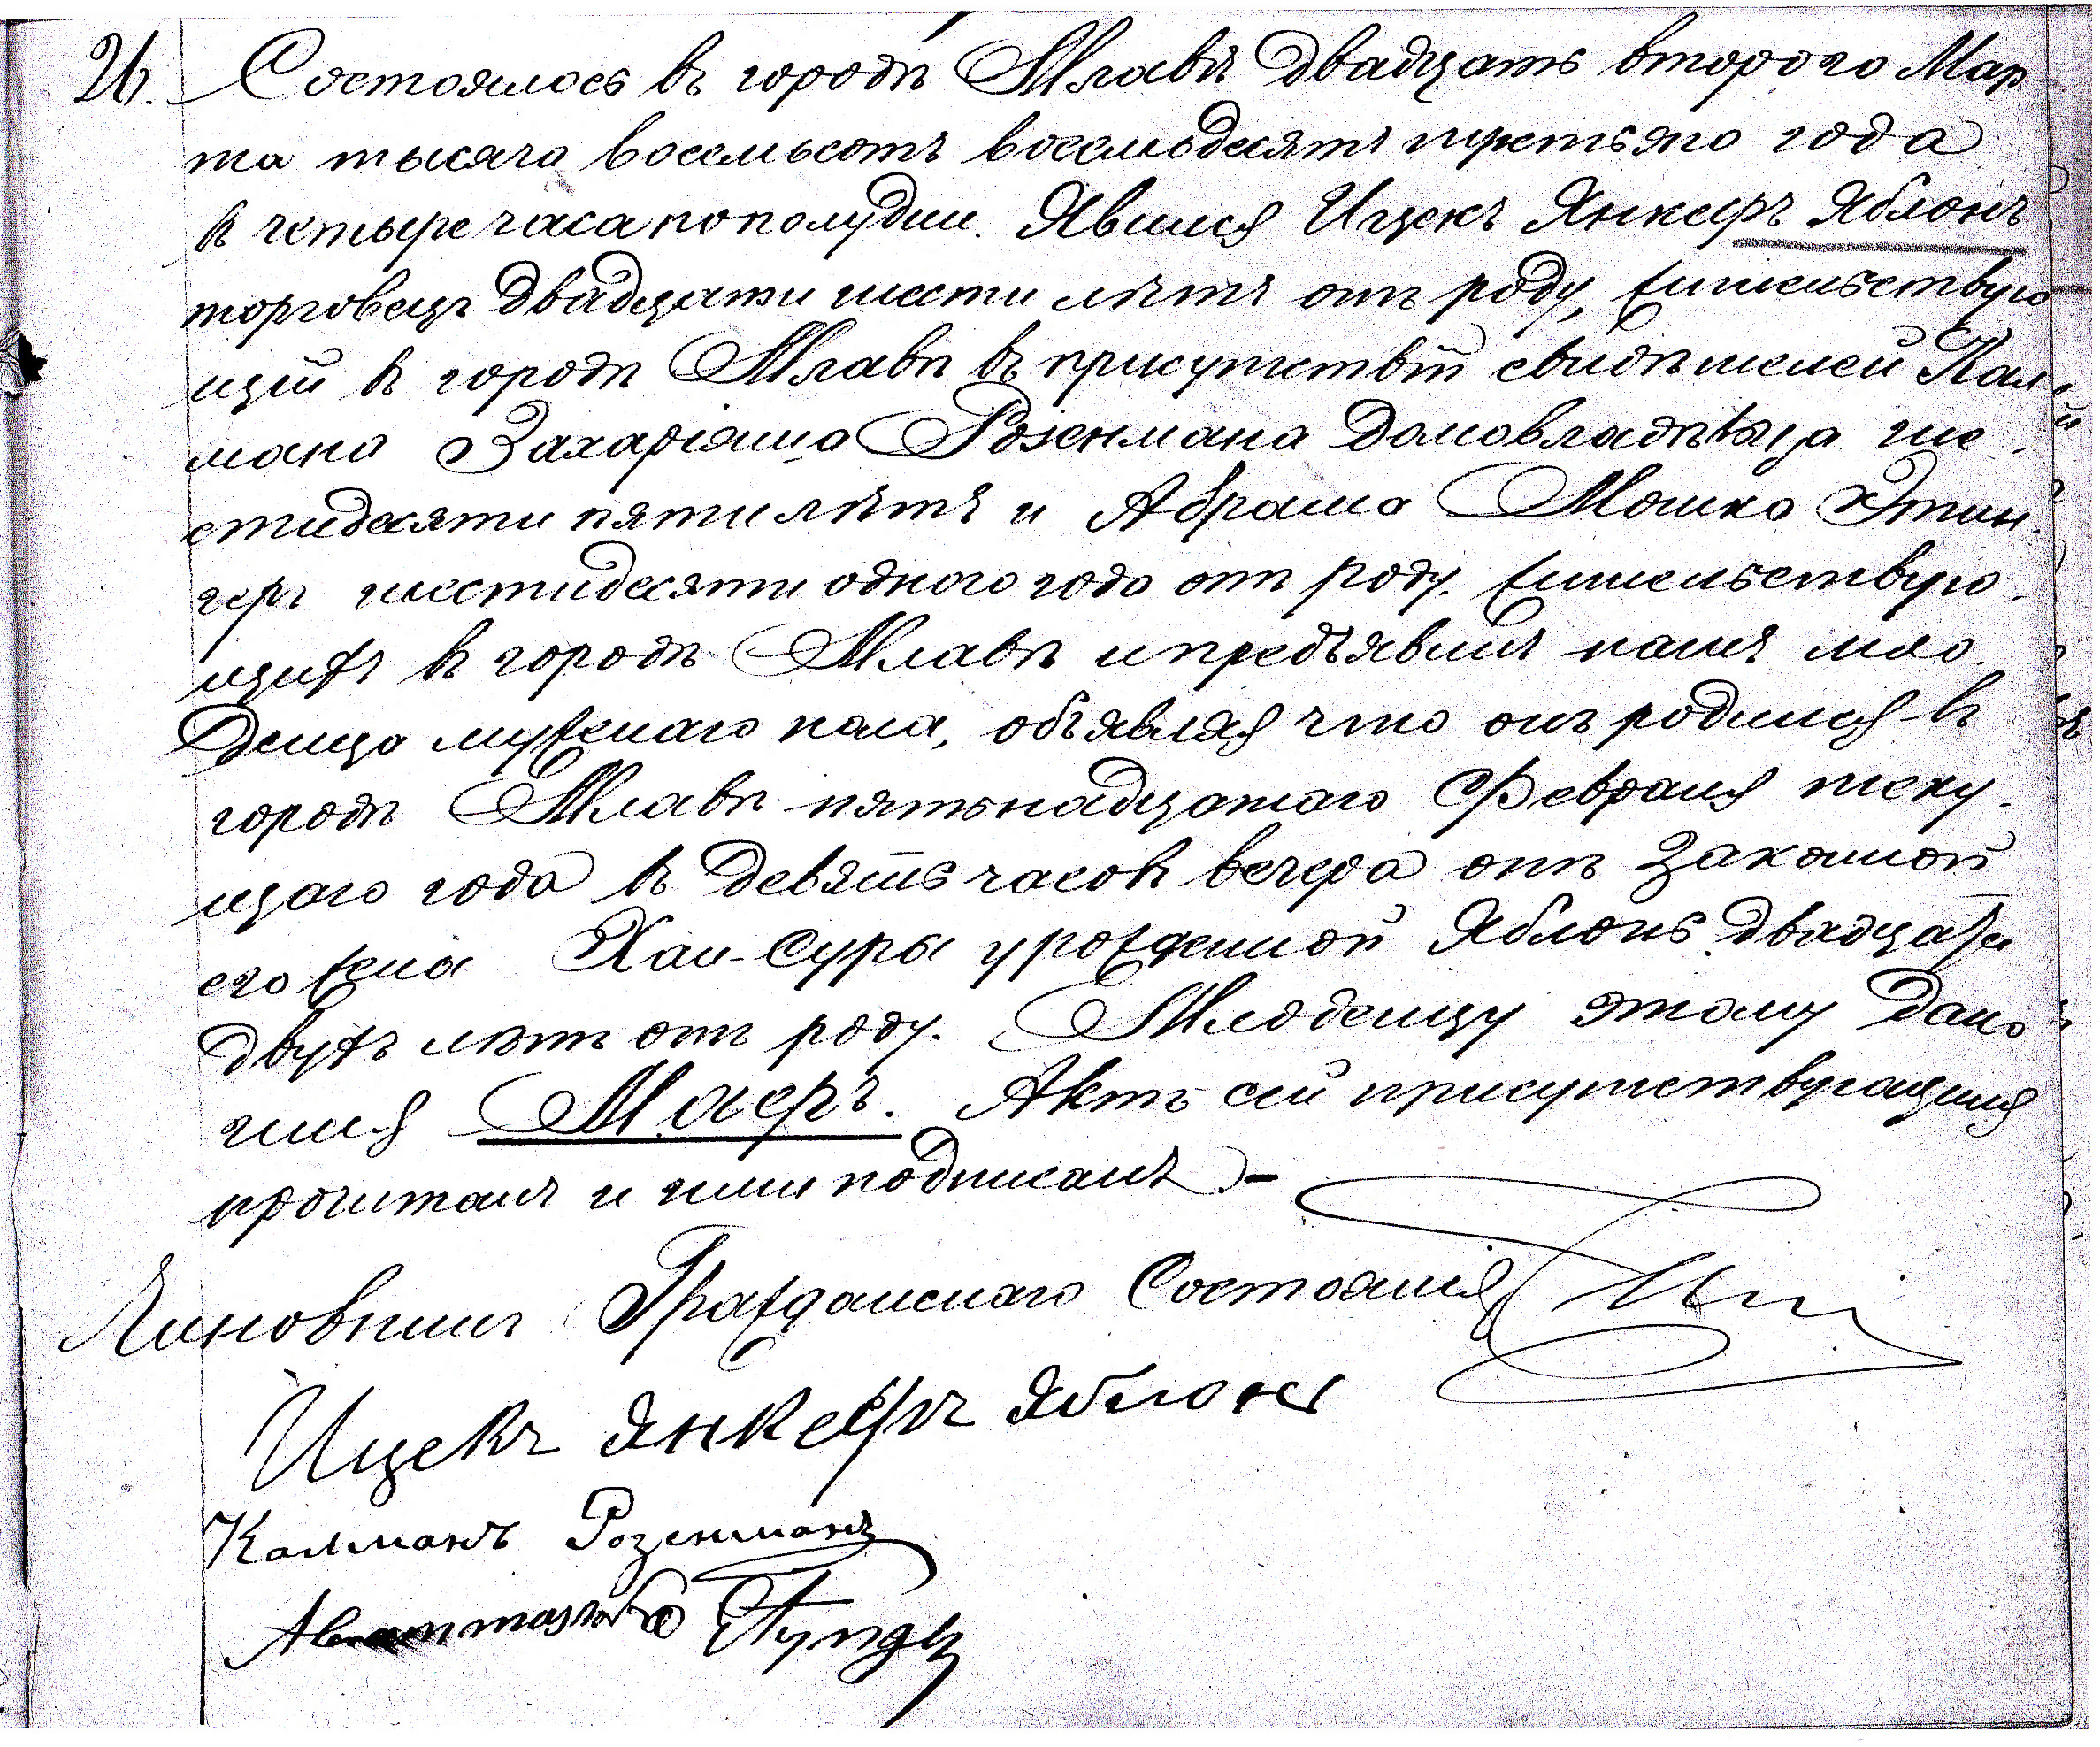 26. Состоялось въ городѣ Млавѣ двадцать второго Мар
та тысяча восемьсотъ восемьдесятъ третьяго года
въ четыре часа пополудни. Явился Ицекъ Янкеръ Яблонъ
торговецъ двадцати шести лѣтъ отъ роду, жительствую
щій въ городѣ Млавѣ въ присутствіи свидѣтелей Кал
мана Захаріаша Розенмана домовладѣльца ше
стидесяти пяти лѣтъ и Абрама Мошка Этин
геръ шестидесяти одного года отъ роду. жительствую
щихъ въ городѣ Млавѣ и предъявилъ намъ мла
денца мужескаго пола, объявляя что онъ родился въ
городѣ Млавѣ пятьнадцатаго Февраля теку
щаго года въ девять часовъ вечера отъ законной
его жены Хаи-Суры урожденной Яблонь двадцати
двухъ лѣтъ отъ роду. Младенцу этому дано
имя Маеръ. Актъ сей присутствующимъ
прочитанъ и ими подписанъ.-
Чиновникъ Гражданскаго Состоянія
Ицекъ Янкеръ Яблонъ
Калманъ Розенманъ